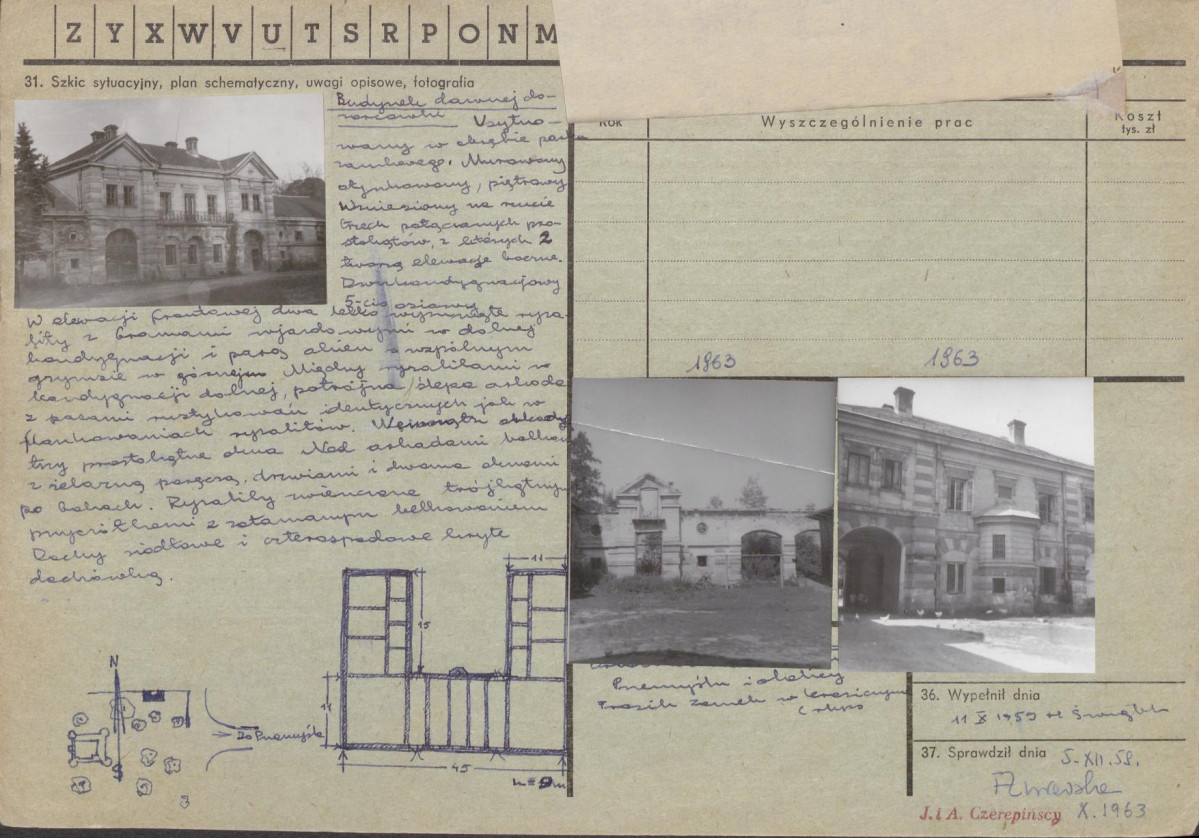 Z Y X W V U T S R P O N M
31. Szkic sytuacyjny, plan schematyczny, uwagi opisowe, fotografia
Budynek dawnej do-
Usytuo-
wany w obrębie parku
zamkowego. Murowany
otynkowany, piętrowy
Wzniesiony na rzucie
trzech połączonych pro-
stokątów, z których 2
tworzą elewacje boczne.
Dwukondygnacjowy
5-cio osiowy
W elewacji frontowej dwa lekko wysunięte ryza-
lity z bramami wjazdowymi w dolnej
kondygnacji i parą okien o wspólnym
gzymsie w górnej Między ryzalitami w
kondygnacji dolnej, potrójna ślepa arkada
z pasami rustykowań identycznych jak w
ryzalitów. Wewnątrz arkady
trzy prostokątne okna Nad arkadami balkon
z żelazną poręczą, drzwiami i dwoma oknami
po bokach. Ryzality zwieńczone trójkątnymi
przyczółkami z załamanym belkowaniem
Dachy siodłowe i czterospadowe kryte
dachówką.
11
15
11
45
h = 9m
N
S
Do Przemyśla
Rok
Wyszczególnienie prac
Koszt
tys. zł
1963 1963
Przemyślu i okolicy
zamek w Krasiczynie
36. Wypełnił dnia
11 X 1959
37. Sprawdził dnia
5-XII.58.
J. i A. Czerepińscy X. 1963